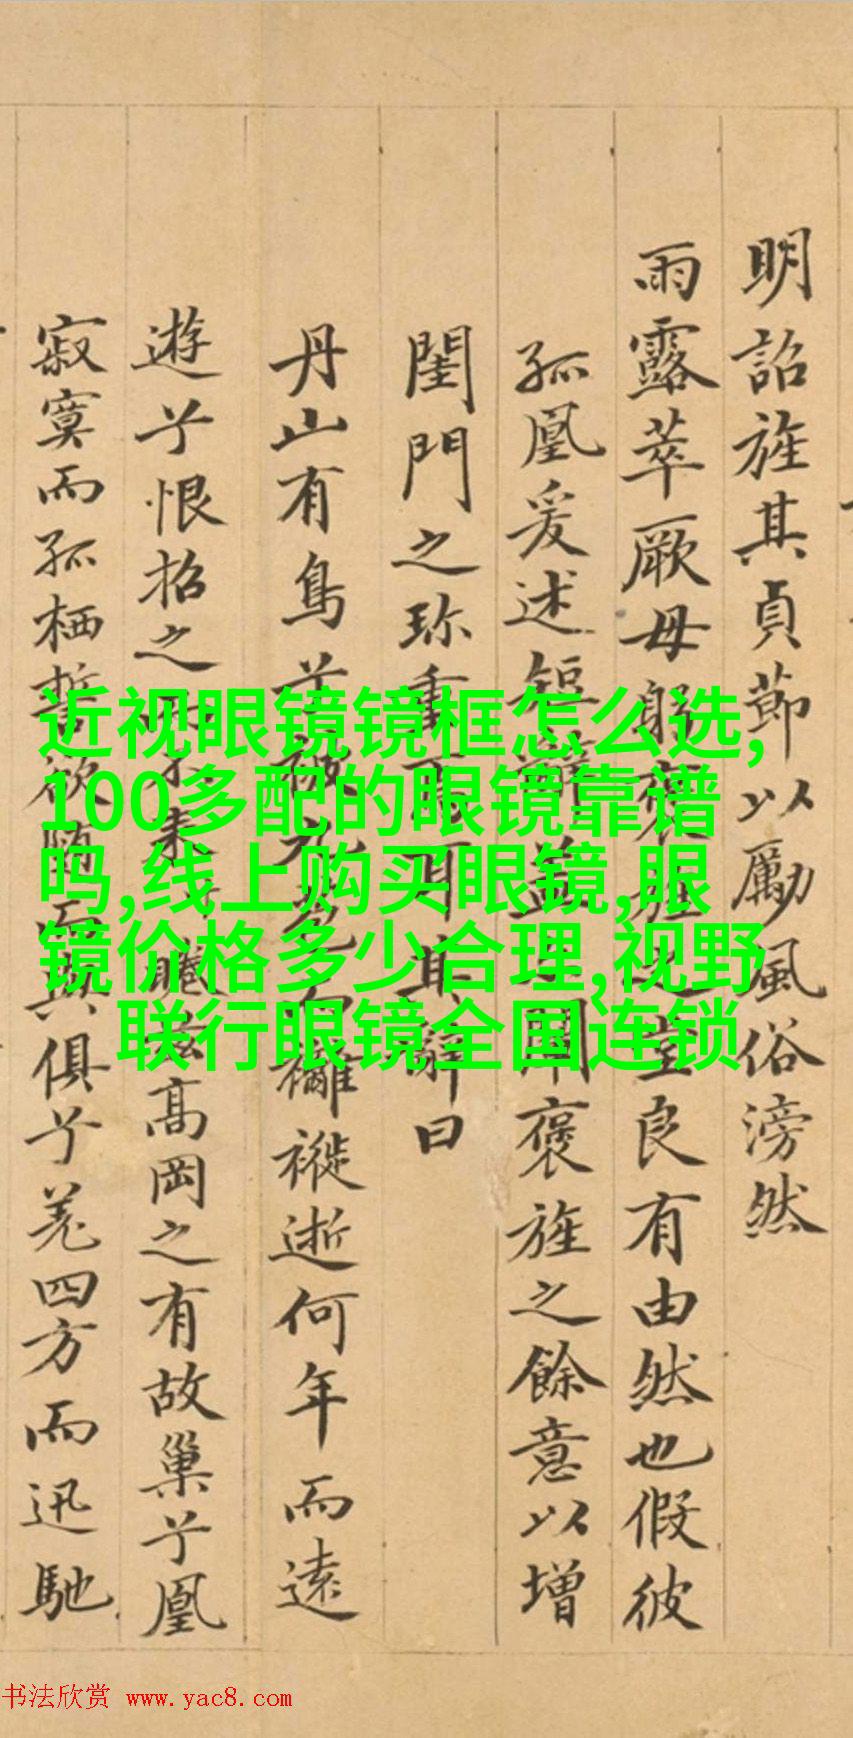 明詔旌其貞節以勵風俗滂然
雨露萃厥母躬旌之堂良有由然也假彼
孤凰爰述短辭蓋闡褒旌之餘意以增
閨門之珎重耳其辭曰
丹山有鳥兮被九苞褷逝何年而遠
遊兮恨招之不來兮高岡之有故巢兮凰
寂寞而孤栖誓欲随而與俱兮羌四方而迅馳
近视眼镜镜框怎么选,
100多配的眼镜靠谱
吗,线上购买眼镜,眼
镜价格多少合理,视野
联行眼镜全国连锁
书法欣赏 www.yac8.com